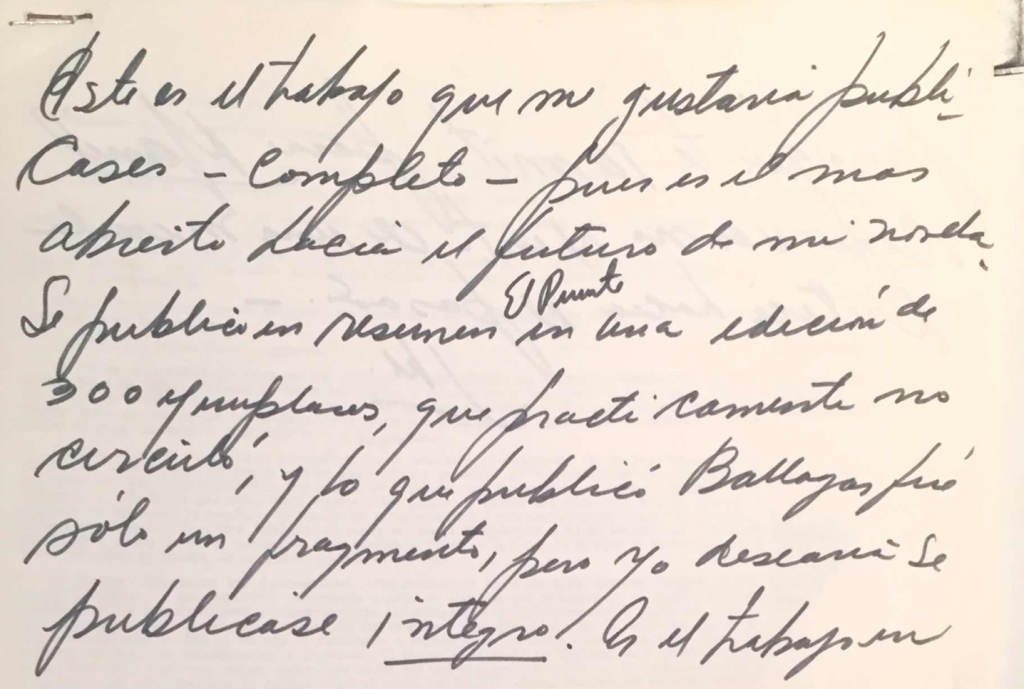 Este es el trabajo que me gustaria publi-
cases - completo - pues es el mas
abierto hacia el futuro de mi novela.
El Puente
Se publico en resumen en una edición de
300 ejemplares, que practicamente no
circuló, y lo que publicó Ballagas fué
sólo un fragmento, pero yo desearia se
publicase integro. Es el trabajo en